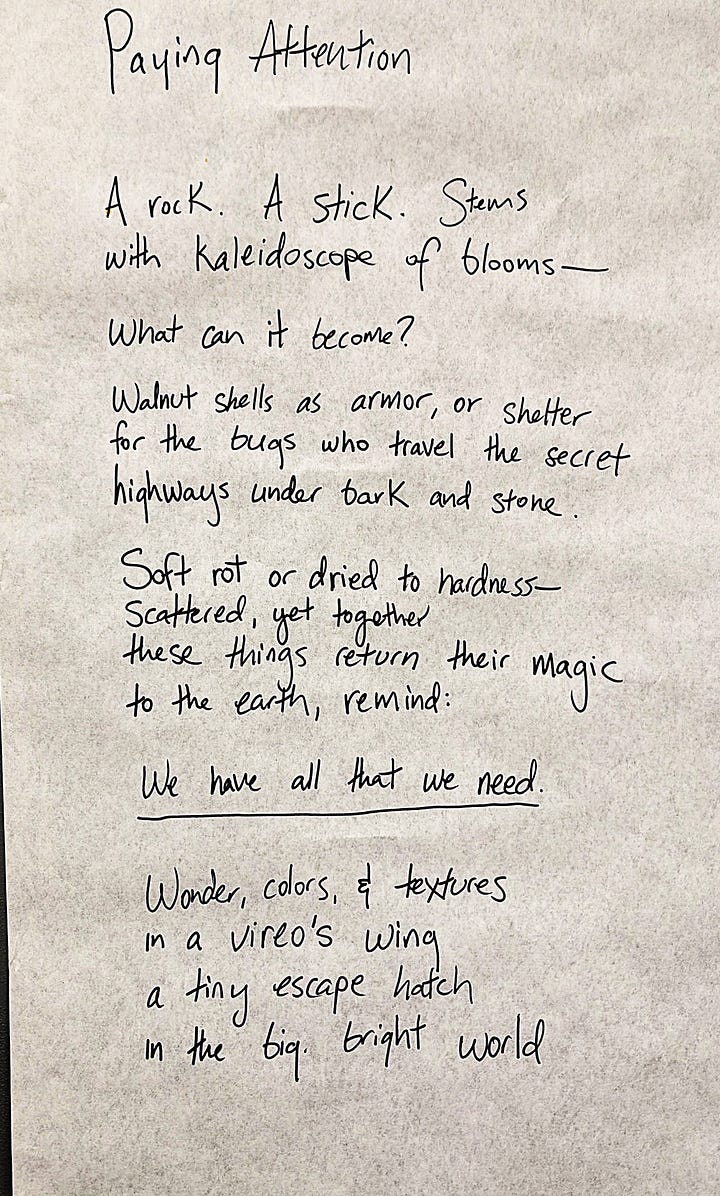 Paying Attention
A rock. A stick. Stems
with kaleidoscope of blooms—
What can it become?
Walnut shells as armor, or shelter
for the bugs who travel the secret
highways under bark and stone.
Soft rot or dried to hardness—
Scattered, yet together
these things return their magic
to the earth, remind:
We have all that we need.
Wonder, colors, & textures
in a vireo's wing
a tiny escape hatch
in the big. bright world